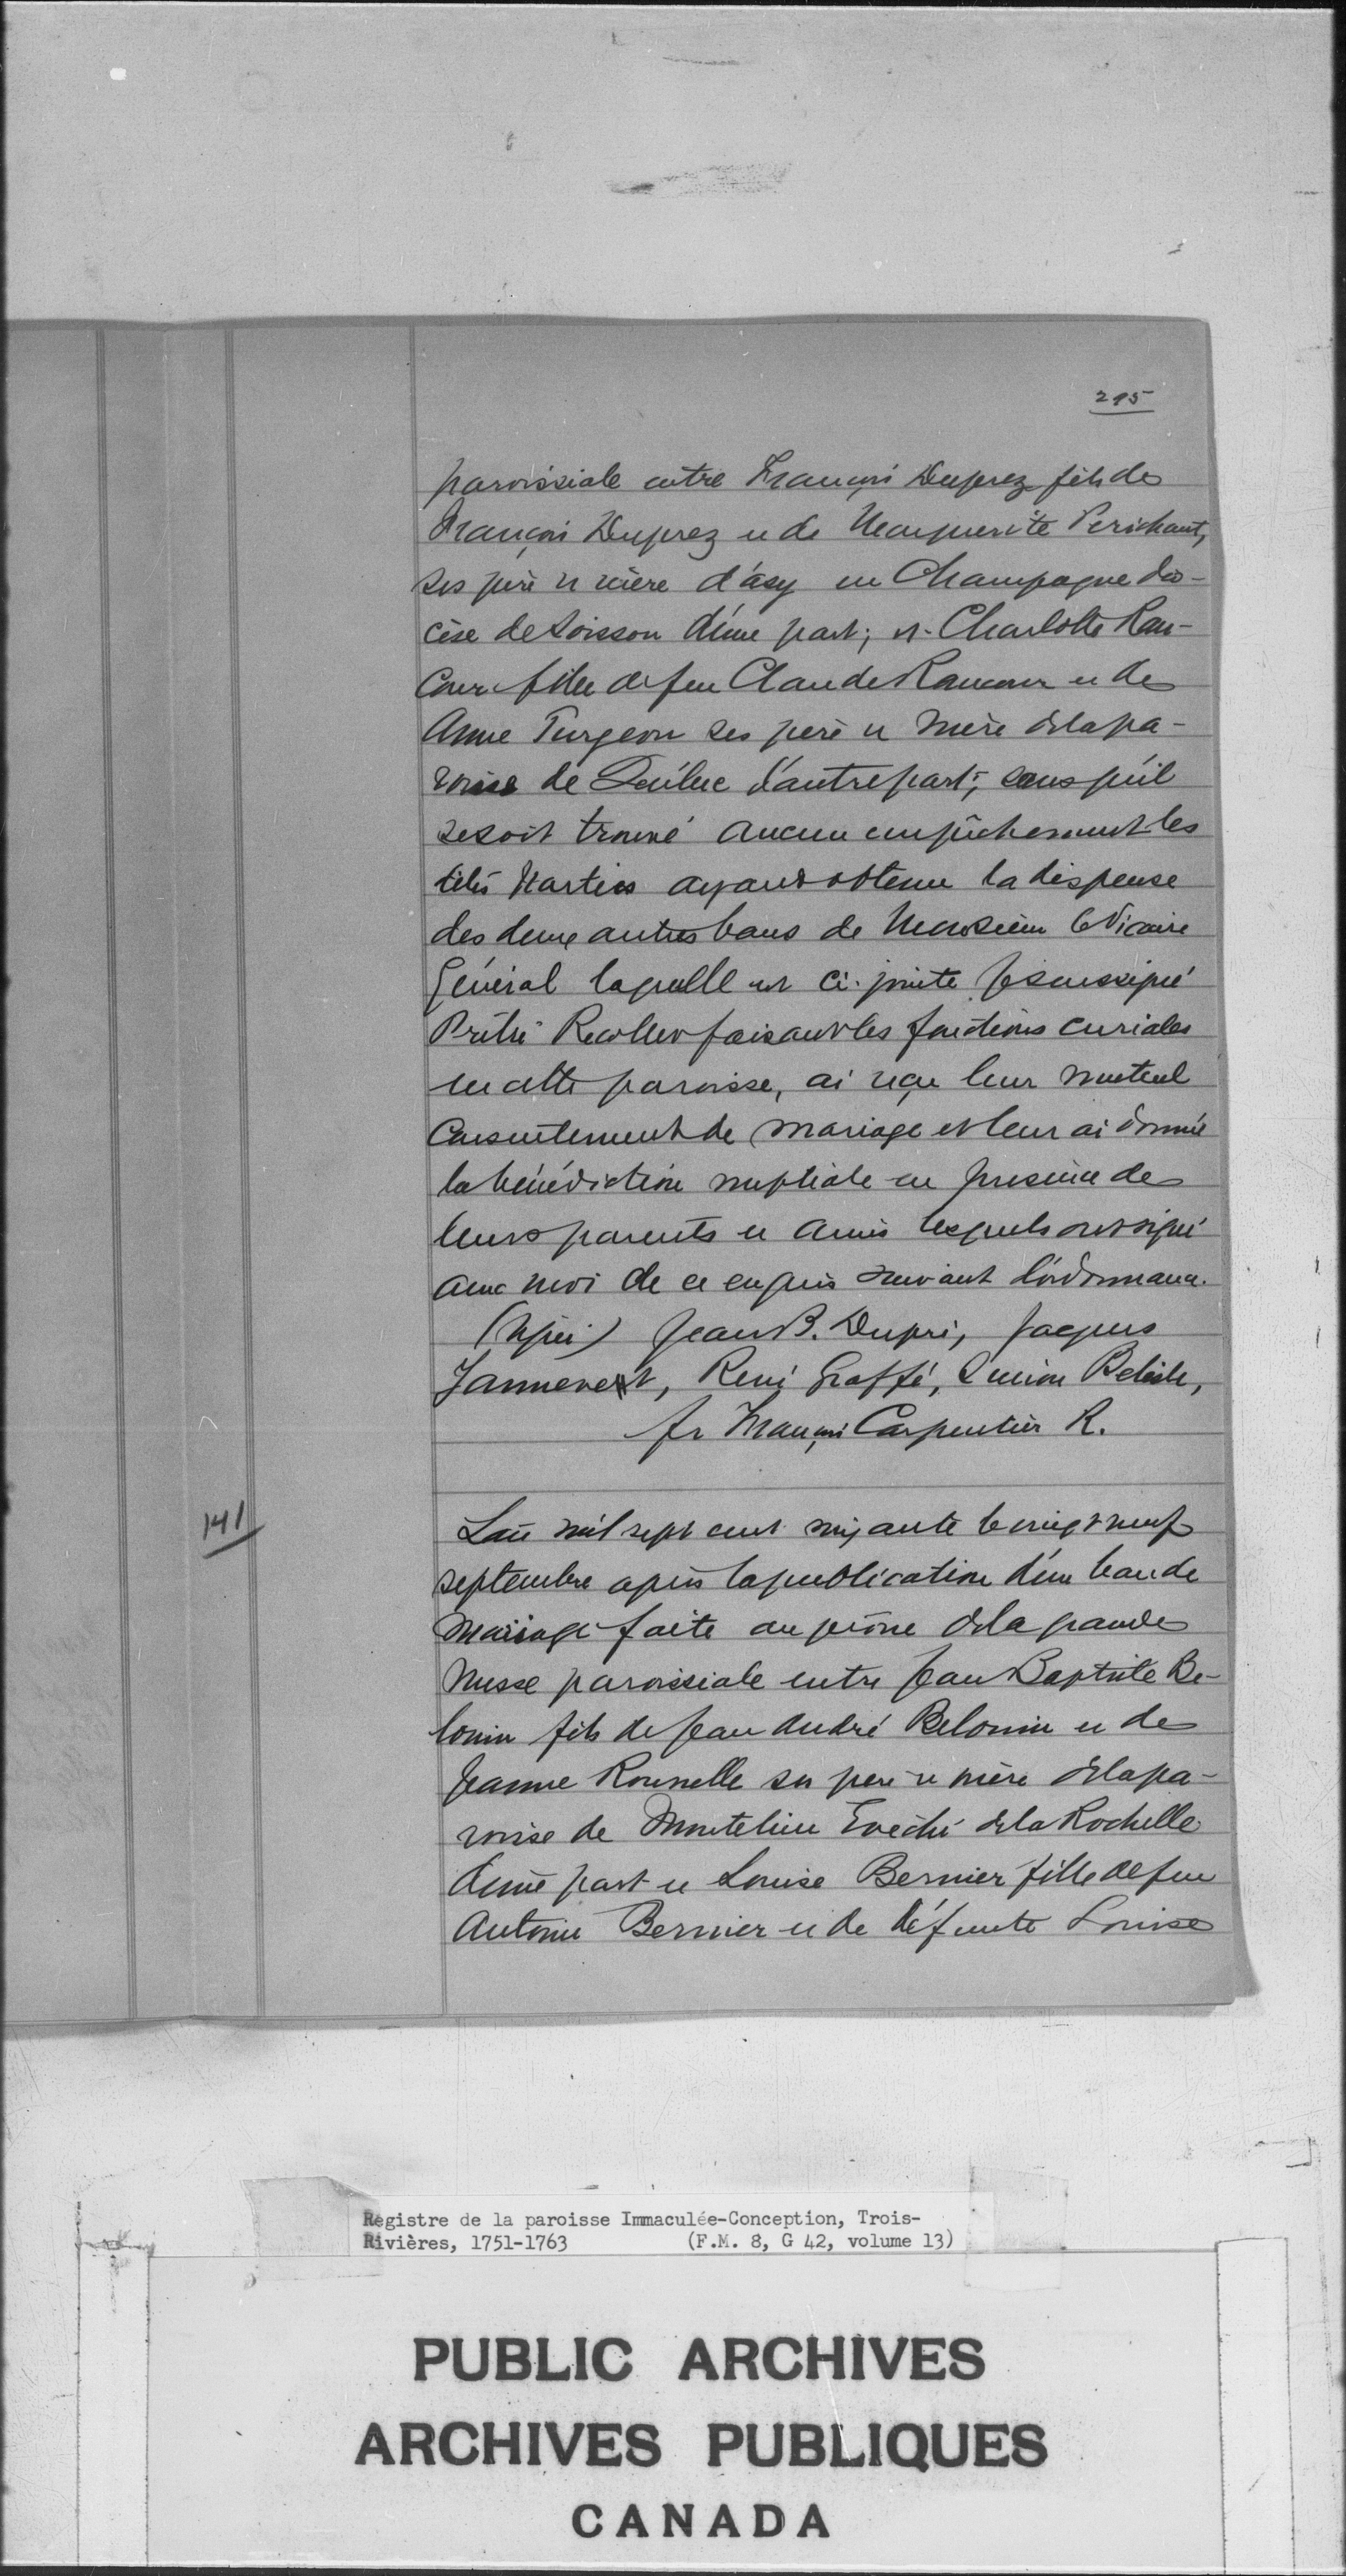 215
paroissiale entre François Duprez fils de
François Duprez et de Marguerite Perichaut,
ses père et mère d'asy en Champagne dio-
cèse de Soisson d'une part; et Charlotte Ran-
cour fille de feu Claude Rancour et de
Anne Turgeon ses père et mère de la pa-
roisse de Québec d'autre part; sans qu'il
se soit trouvé aucun empêchement les
dites parties ayant obtenu la dispense
des deux autres bans de Monsieur le Vicaire
Général laquelle est ci-jointe je soussigné
Prêtre Recollet faisant les fonctions curiales
en cette paroisse, ai reçu leur mutuel
consentement de mariage et leur ai donné
la bénédiction nuptiale en présence de
leurs parents et amis lesquels ont signé
avec moi de ce enquis suivant l'ordonnance.
(signé) Jean B. Dupré, Jacques
Jannevext, René Graffé, Belisle,
fr François Carpentier R.
141
L'an mil sept cent soixante le vingt neuf
septembre après la publication d'un ban de
mariage faite au prône de la grande
messe paroissiale entre Jean Baptiste Be-
lonin fils de Jean André Belonin et de
Jeanne Rounelle ses père et mère de la pa-
roisse de Montelieu Evêché de la Rochelle
d'une part et Louise Bernier fille de feu
Antoine Bernier et de défunte Louise
Registre de la paroisse Immaculée-Conception, Trois-
Rivières, 1751-1763 (F.M. 8, G 42, volume 13)
PUBLIC ARCHIVES
ARCHIVES PUBLIQUES
CANADA